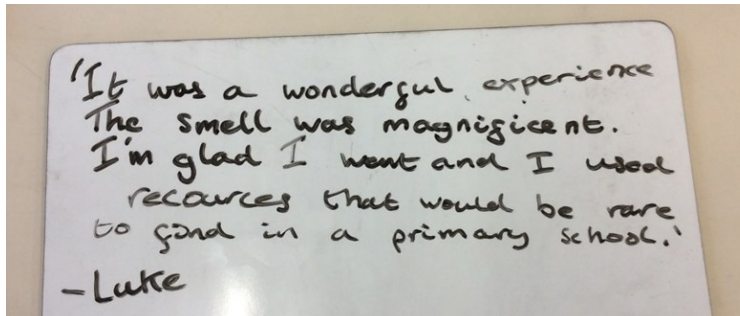 'It was a wonderful experience
The smell was magnificent.
I'm glad I went and I used
recources that would be rare
to find in a primary school.'
-Luke